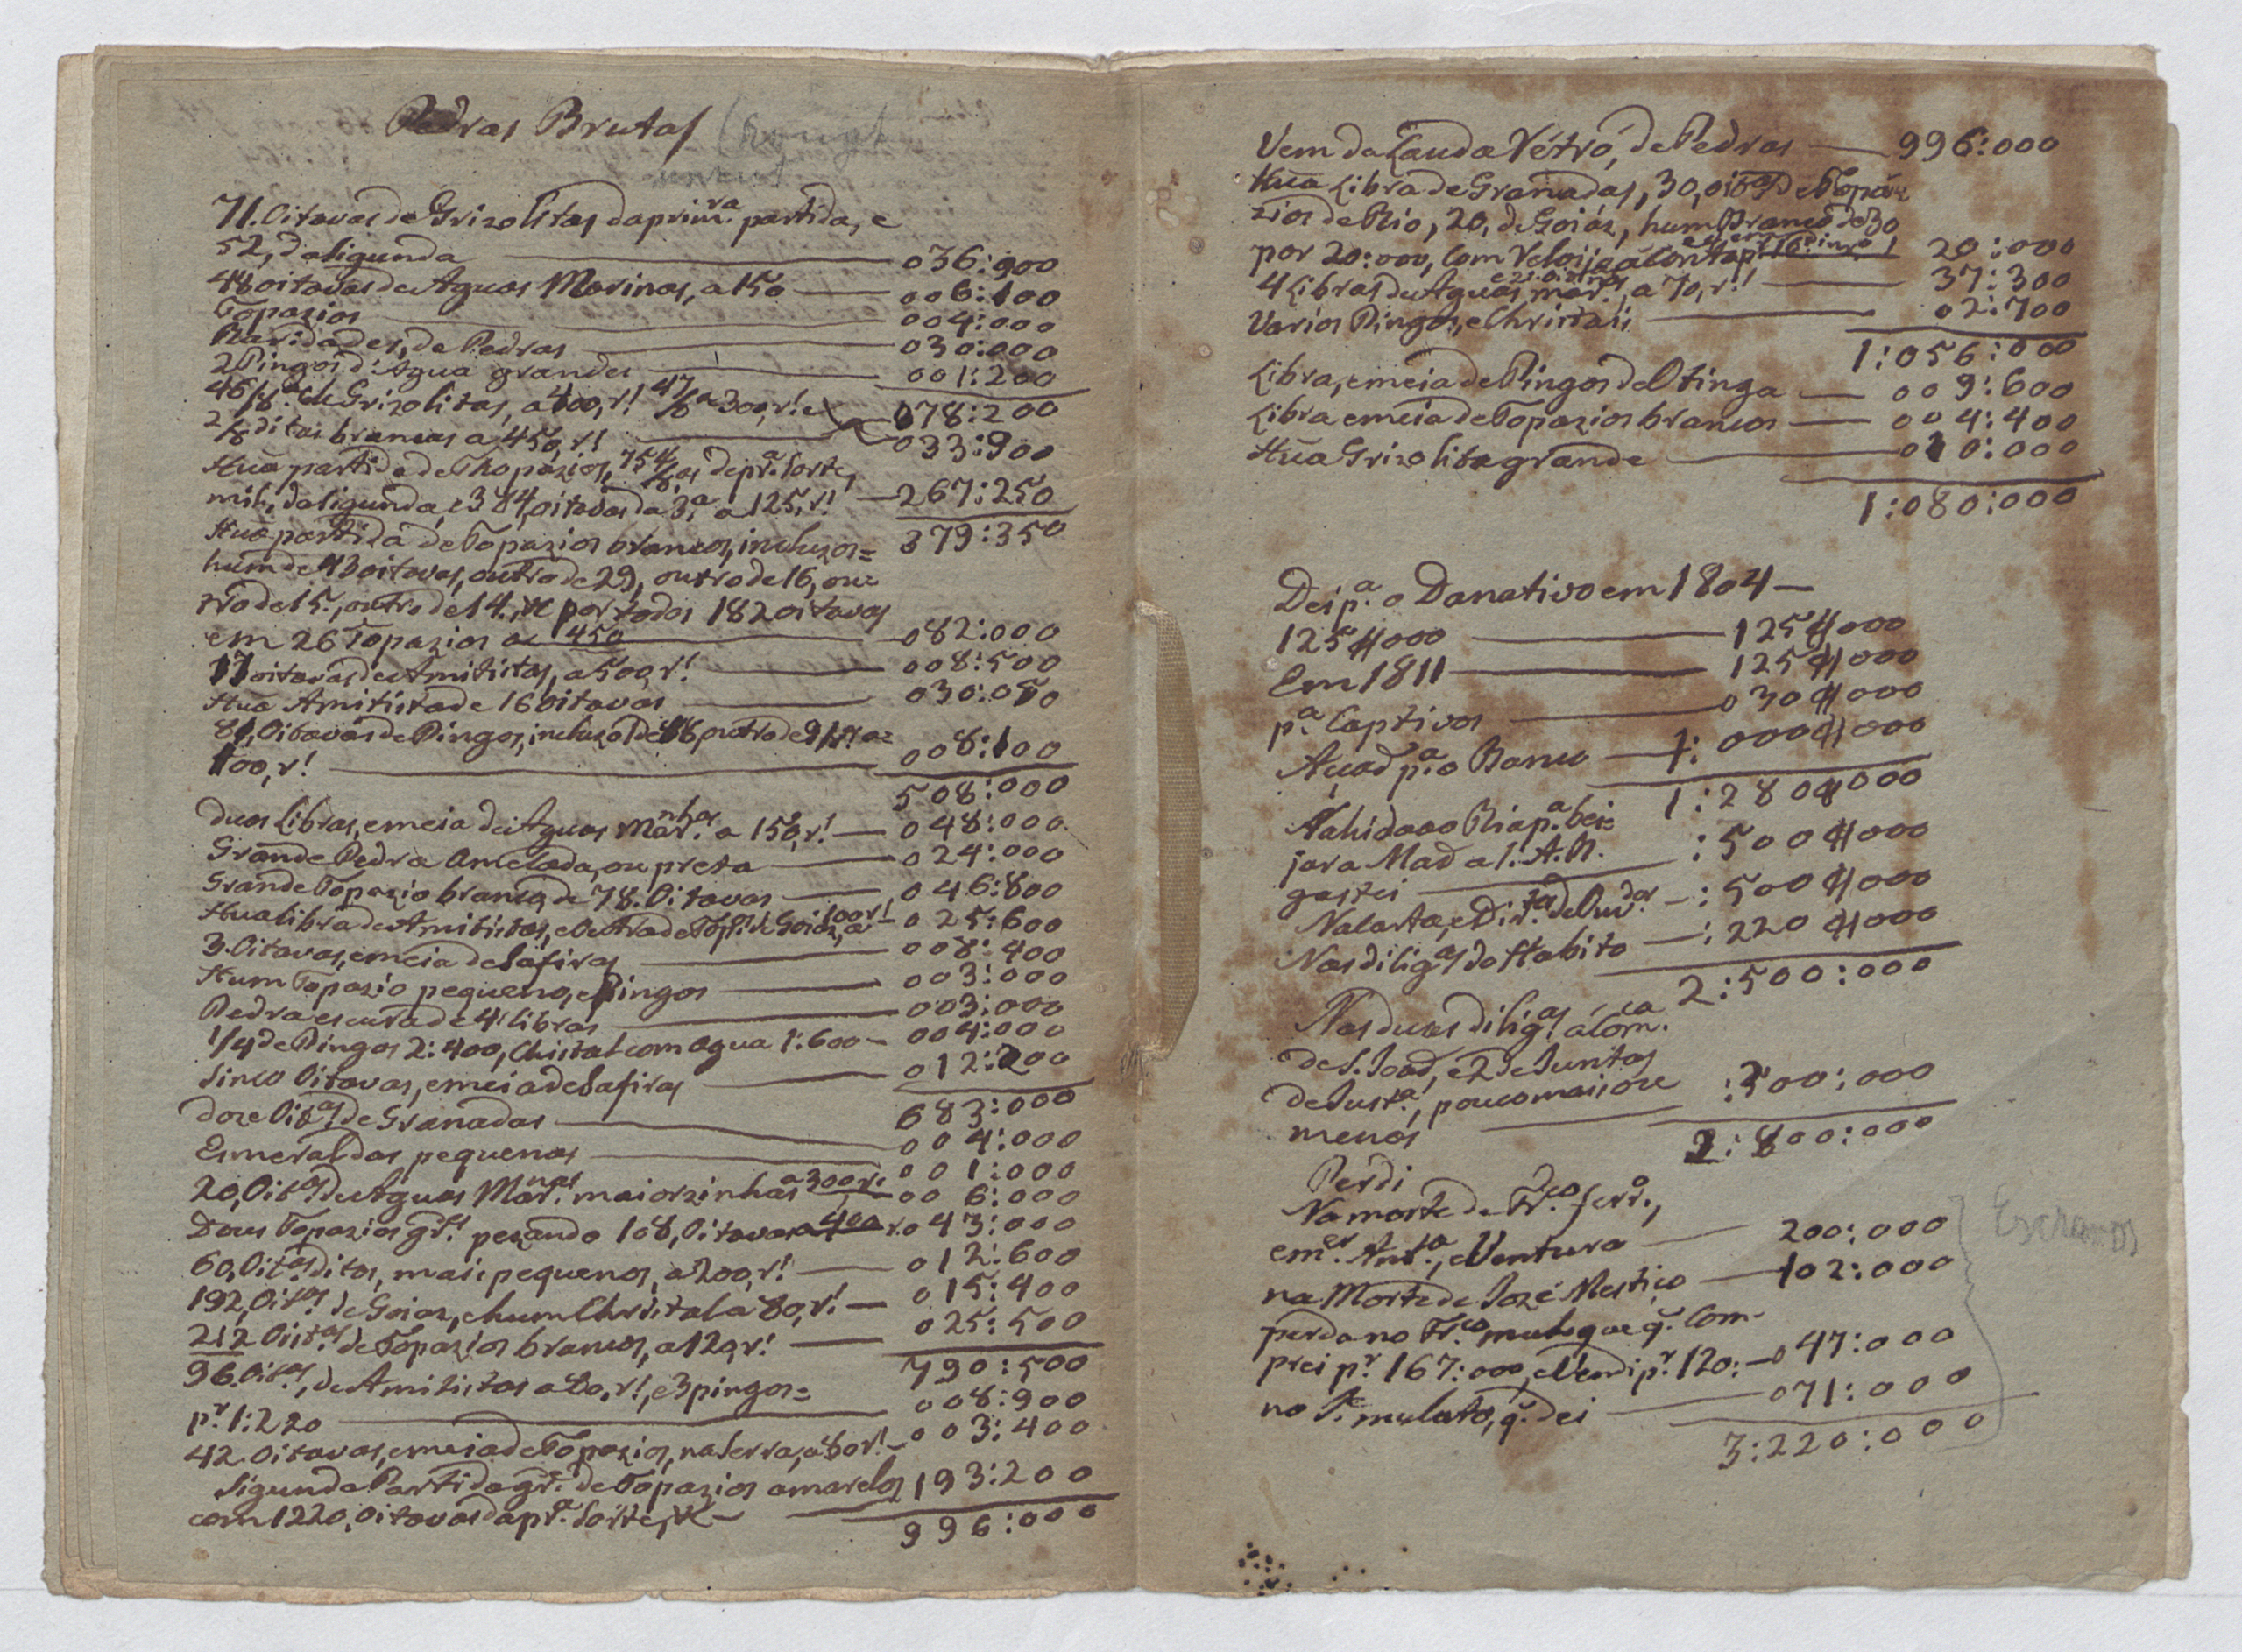 Pedras Brutas (rough
uncut
71. Oitavas de Grizolitas da prim.ra partida, e
52, da sigunda — 036:900
48 oitavas de Aguas Marinas, a 150 — 006:100
Topazios — 004:000
Raridades, de Pedras — 030:000
2 Pingos d'Agua grandes — 001:200
46/8.as de Grizolitas, a 400, r.! 47/8 a 300, r.! e 078:200
2/8 ditas brancas a 450, r.! — 033:900
Hua partida de Thopazios, 754/8.as de pr.a Sorte,
mil, da sigunda, e 384, oitavas da 3.a a 125, r.! — 267:250
379:350
Hua partida de Topazios brancos, incluzos=
hum de 43 oitavas, outro de 29, outro de 16, ou=
tro de 15., outro de 14., por todos 182 oitavas
em 26 Topazios a 450 — 082:000
17 oitavas de Amitistas, a 500, r.! — 008:500
Hua Amitista de 16 oitavas — 030:050
81, Oitavas de Pingos, incluzo 1 de 16, outro de 9 a=
100, r.! — 008:100
508:000
duas Libras, e meia de Aguas Mar.nhas a 150, r.! — 048:000
Grande Pedra Amelada, ou preta — 024:000
Grande Topazio branco, de 78. Oitavas — 046:800
Hua libra de Amitistas, e outra de Top.os de Goiáz, a 100 r! — 025:600
3. Oitavas, e meia de Safiras — 008:400
Hum Topazio pequeno, e Pingos — 003:000
Pedra escura de 4 libras — 003:000
1/4 de Pingos 2:400, Christal com agua 1:600 — 004:000
Sinco Oitavas, e meia de Safiras — 012:200
683:000
doze Oit.as de Granadas — 004:000
Esmeraldas pequenas — 001:000
20, Oit.as de Aguas Mar.nas maiorzinhas a 300 r. — 006:000
Dous Topazios gr.! pezando 108, Oitavas a 400 r. 043:000
60, Oit.as ditos, mais pequenos, a 200, r.! — 012:600
192, Oit.as de Goiaz, e hum Christal a 80, r.! — 015:400
212 Oit.as de Topazios brancos, a 120, r.! — 025:500
790:500
96. Oit.as, de Amitistas a 80, r.!, e 3 pingos=
p.r 1:220 — 008:900
42. Oitavas, e meia de Topazios, na Serra, a 80 r.! — 003:400
Sigunda Partida gr.e de Topazios amarelos 193:200
com 1220, oitavas da pr.a Sorte, &c — 996:000
Vem da Lauda Vétro, de Pedras — 996:000
Hua Libra de Granadas, 30, oit.as de Topá=
zios de Rio, 20, de Goiás, hum Branco de 30
por 20:000, com Veloso a Conta 20:000
4 Libras de Aguas mar.as, a 70, r.! — 37:300
Varios Pingos, e Christais — 02:700
1:056:000
Libra, e meia de Pingos de Otinga — 009:600
Libra e meia de Topazios brancos — 004:400
Hua Grizolita grande — 010:000
1:080:000
Deip.a o Danativo em 1804 —
125$000 — 125$000
Em 1811 — 125$000
p.a Captivos — 030$000
p.a o Banco — 1:000$000
1:280$000
Nahida ao Rio p.a bei=
jar a Maõ a S. A. R.
gastei — :500$000
Na Carta, e Dir.tos de Ouv.or — :500$000
Nas dilig.as do Habito — :220$000
2:500:000
Nas duas dilig.as á Com.ca
de S. Joaõ, e 2 de Juntas
de Just.a, pouco mais, ou
menos — :300:000
2:800:000
Perdi
Na morte de Fr.co
em.er Ant.a, e Ventura — 200:000
na Morte de Jozé Mestiço — 102:000
perda no Fr.co muleque q. Com=
prei p.r 167:000, e Vendi p.r 120: — 047:000
no P. mulato, q. dei — 071:000
3:220:000
Escravos